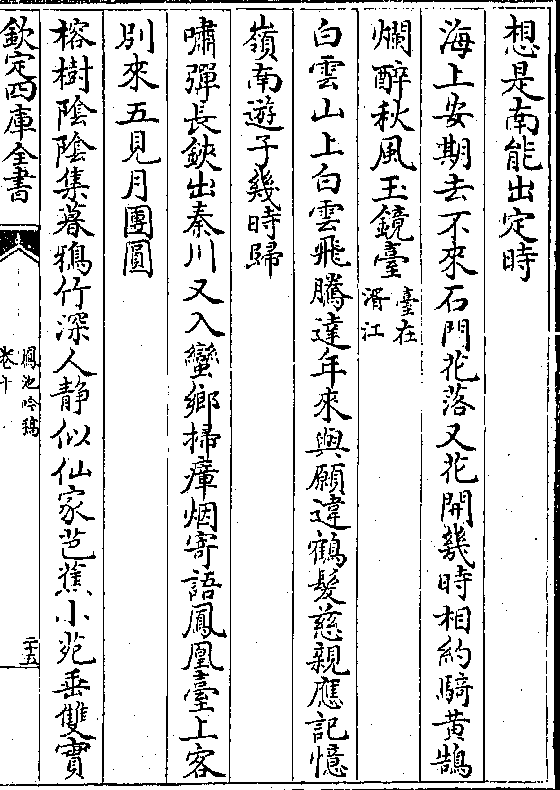 想是南能出定時
海上安期去不來石門花落又花開幾時相約騎黃鵠
爛醉秋風玉鏡臺臺在滑江
白雲山上白雲飛騰達年來與願違鶴髮慈親應記憶
嶺南遊子幾時歸
嘯彈長鋏出秦川又入蠻鄉掃瘴烟寄語鳳凰臺上客
別來五見月團圓
榕樹陰陰集暮鴉竹深人靜似仙家芭蕉小苑垂雙實
欽定四庫全書
鳳池吟稿
卷十
二十五